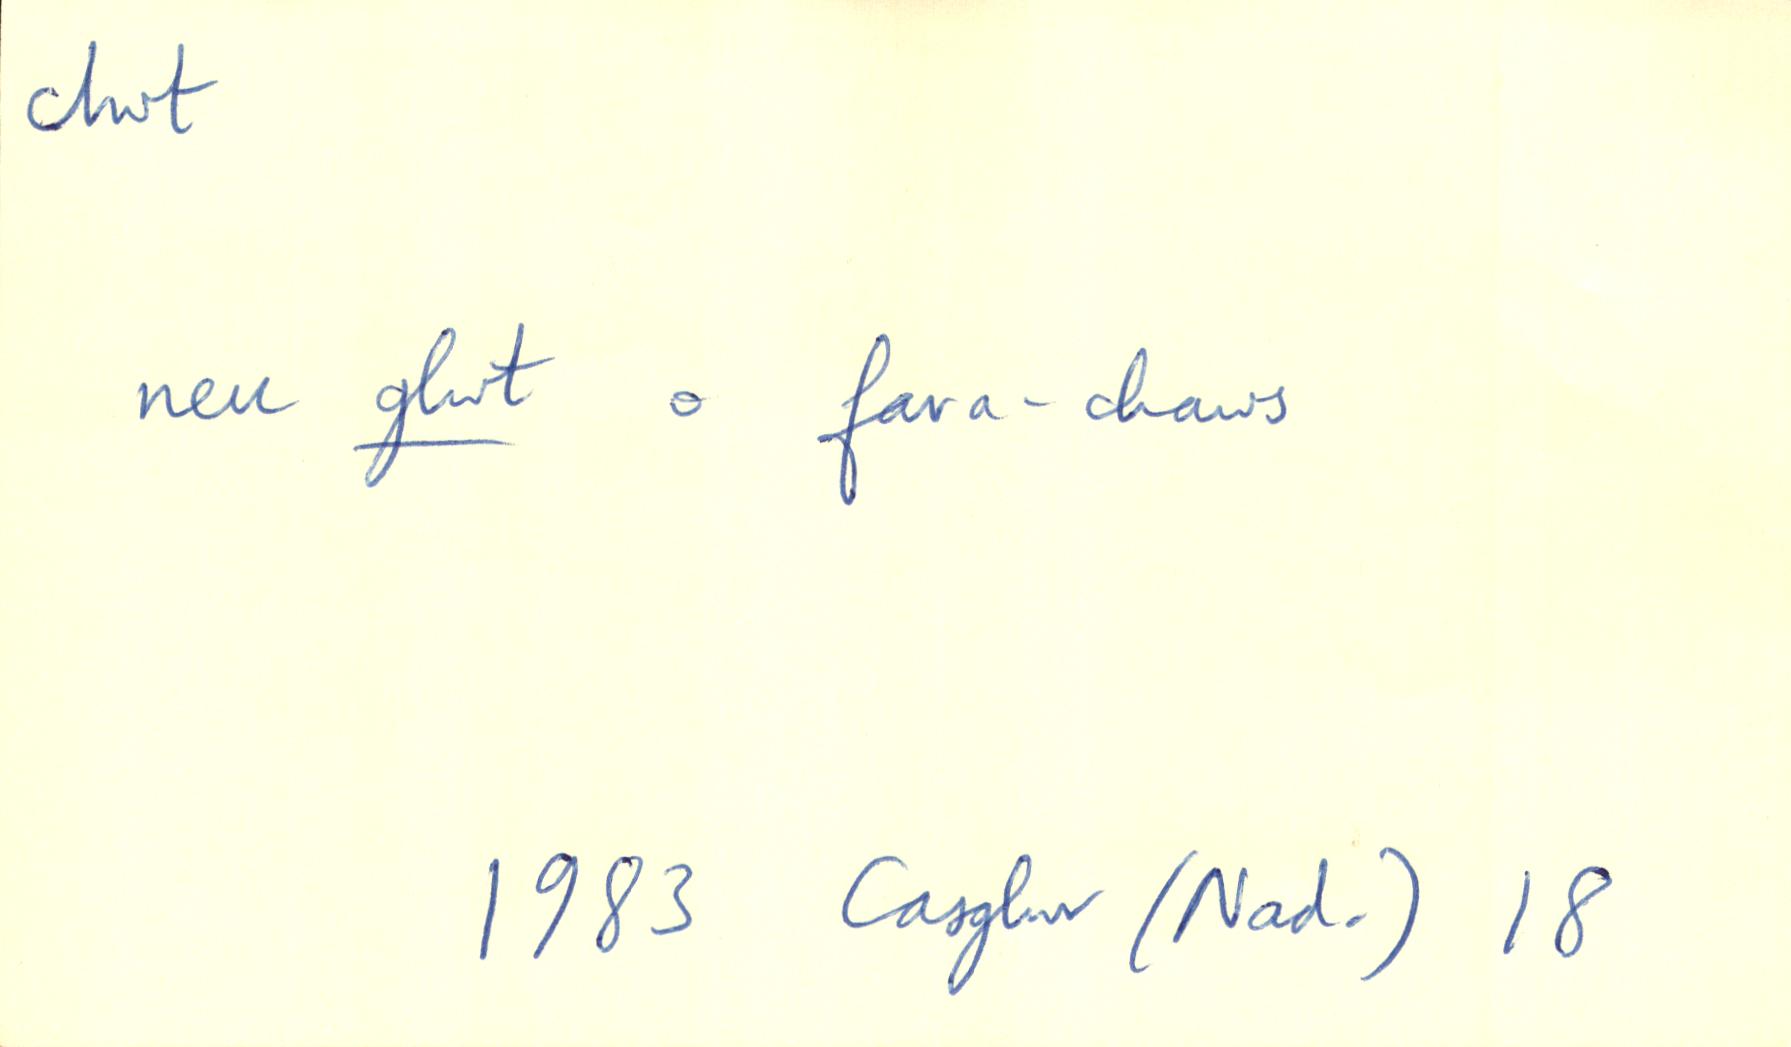 clwt
neu glwt o fara-chaws
1983 Casglwr (Nad.) 18